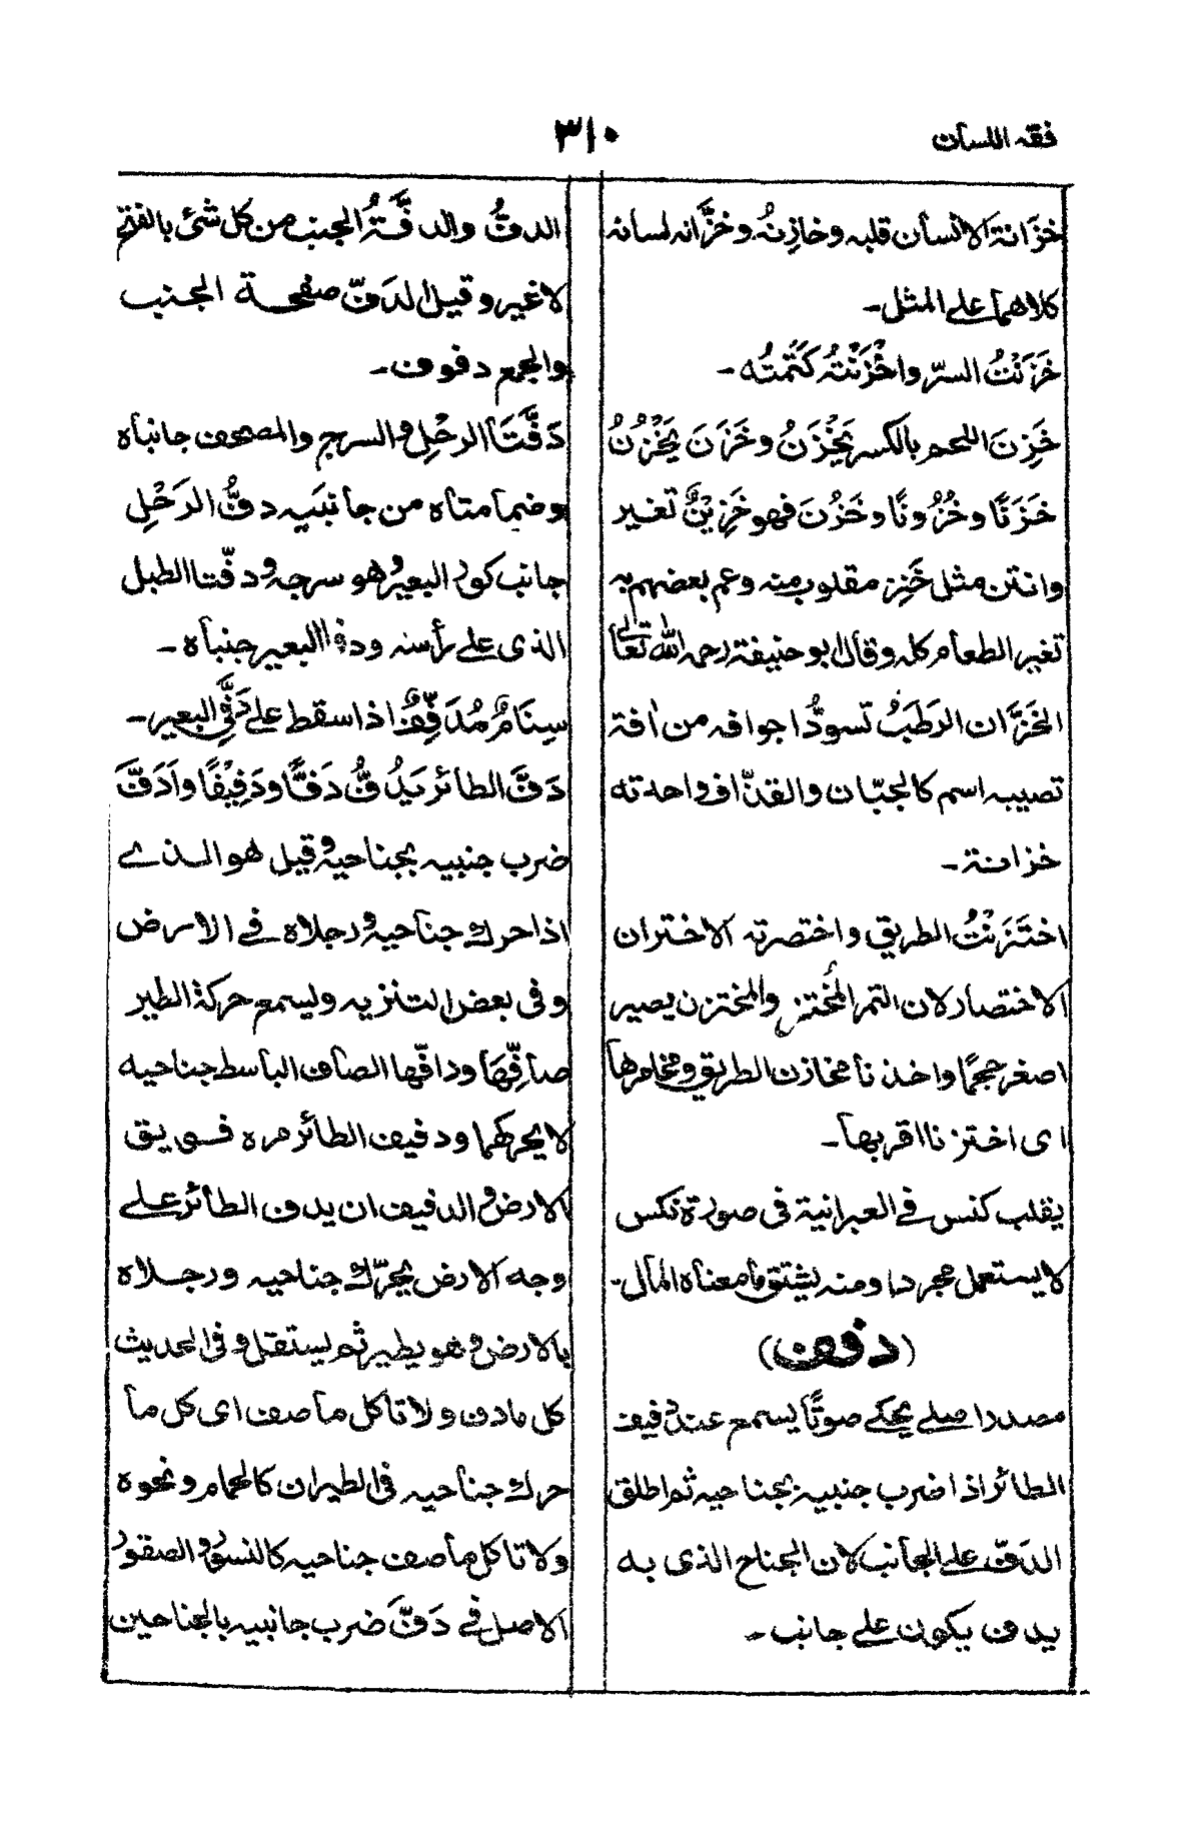 فقه اللسان
٣١٠
خزَانة الانسان قلبه وخازِنُه وخزَّانه لسانه
كلاهما على المثل۔
خَزَنْتُ السرّ واخْزَنْتُه كَتَمتُه۔
خَزِنَ اللحم بالكسر يَخْزَنُ وخَزَنَ يَخْزُنُ
خَزَنًا وخُزُونًا وخَزُنَ فهو خَزِيْنٌ تغير
وانتن مثل خَنِزَ مقلوب منه وعم بعضهم به
تغير الطعام كله وقال ابو حنيفة رحمه الله تعالى
الخَزَّان الرطَبُ تسودُّ اجوافه من اٰفة
تصيبه اسم كالجبّان والقذّاف واحدته
خزانة۔
اختَزَنْتُ الطريق واختصرته الاختزان
الاختصار لان التمر المُختزن والمختزن يصير
اصغر حجمًا واخذنا مخازن الطريق ومخاصرها
اى اختزنا اقربها۔
يقلب كنس فى العبرانية فى صورة نكس
لا يستعمل مجردا ومنه يشتق ما معناه المال۔
(دفف)
مصدر اصلى يحكى صوتًا يسمع عند دفيف
الطائر اذا ضرب جنبيه بجناحيه ثم اطلق
الدَفّ على الجانب لان الجناح الذى به
يدف يكون على جانب۔
الدفُّ والدفَّةُ الجنب من كل شئ بالفتح
لا غير وقيل الدَفّ صفحة الجنب
والجمع دفوف۔
دَفَّتَا الرحْل والسرج والمصحف جانباه
وضماماتاه من جانبَيه دفُّ الرَحْلِ
جانب كور البعير وهو سرجه ودفّتا الطبل
الذى على رأسه ودفا البعير جنباه۔
سِنَامٌ مُدَفِّفٌ اذا سقط على دَفَّىِ البعير۔
دَفَّ الطائر يَدُفُّ دَفًّا ودَفِيْفًا واَدَفَّ
ضرب جنبيه بجناحيه وقيل هو الذى
اذا حرك جناحيه ورجلاه فى الارض
وفى بعض التنزيه وليسمع حركة الطير
صافِّهَا ودافّها الصاف الباسط جناحيه
لا يحركهما ودفيف الطائر مره فويق
الارض والدفيف ان يدف الطائر على
وجه الارض يحرّك جناحيه ورجلاه
بالارض وهو يطير ثم يستقل وفى الحديث
كل مادف ولا تاكل ما صف اى كل ما
حرك جناحيه فى الطيران كالحمام ونحوه
ولا تاكل ما صف جناحيه كالنسور والصقور
الاصل فى دَفَّ ضرب جانبيه بالجناحين